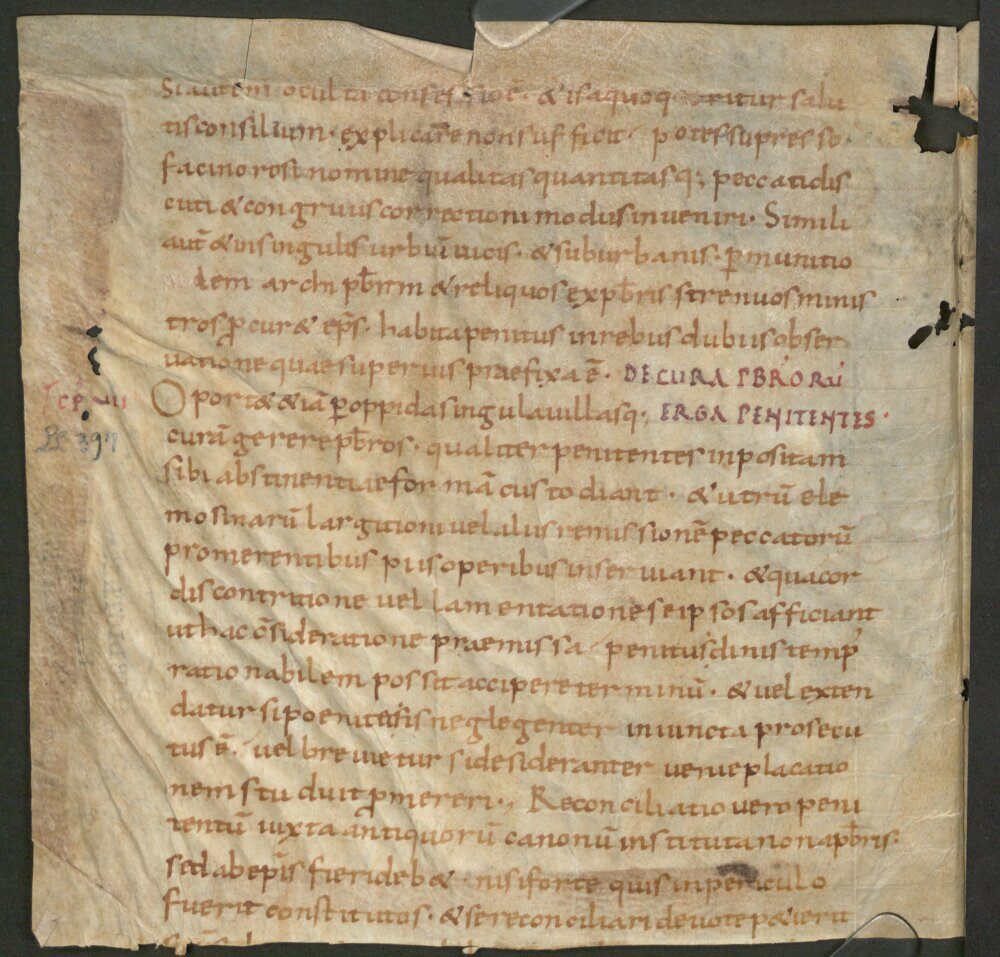 Si autem occulta confessioē · & is a quo quoeritur salu
tis consilium · explicare non sufficit potest supresso ·
facinorosi nomine qualitas quantitasq; peccati dis
cuti & congruus correctioni modus inveniri · Simili
aut̄ & in singulis urbiū vicis · & suburbanis · ꝑ munitio
lem archi pb̄rm & reliquos ex pb̄ris strenuos minis
tros ꝓcur& ep̄s · habita penitus in rebus dubiis obser
vatione quae superius praefixa ē · DE CURA PBRORŪ
Oport& & iā ꝑ oppida singula villasq; ERGA PENITENTES ·
cp̄ VII
397
curā gerere pb̄ros · qualiter penitentes inpositam
sibi abstinentiae formā custodiant · & utrū ele
mosinarū largitioni vel aliis remissionē peccatorū
promerentibus piis operibus inserviant · & qua cor
dis contritione vel lamentatione se ipsos afficiant
ut hac c̄sideratione praemissa penitudinis temp̄
rationabilem possit accipere terminū · & vel exten
datur si poenitens neglegenter iniuncta prosecu
tus ē · vel brevietur si desideranter veniae placatio
nem studuit ꝓmereri · Reconciliatio vero peni
tentū iuxta antiquorū canonū instituta non a pb̄ris ·
sed ab ep̄is fieri deb& · nisi forte quis in periculo
fuerit constitutos · & se reconciliari devote p&ierit